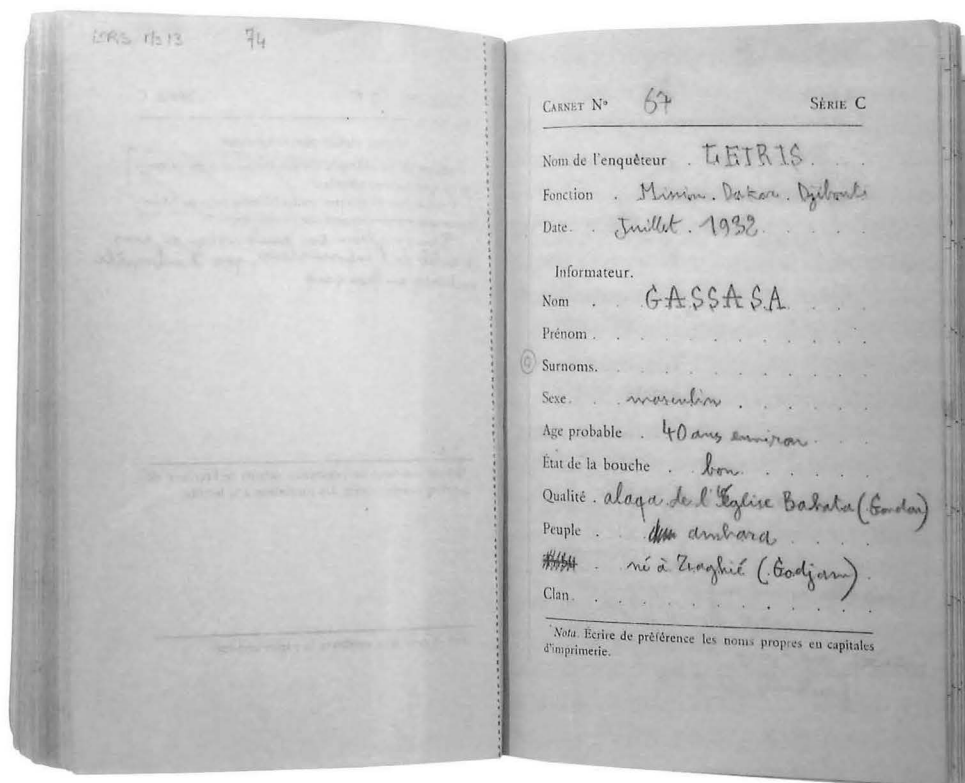 74
CARNET N° 67 SÉRIE C
Nom de l'enquêteur . LEIRIS . .
Fonction . Mission . Dakar . Djibouti
Date . . Juillet . 1932 . .
Informateur.
Nom . . GASSASA . .
Prénom . . . . . . . . .
Surnoms. . . . . . . . .
Sexe . . masculin . . . .
Age probable . 40 ans environ . .
État de la bouche . bon . . . .
Qualité . alaqa de l'Église Bahata (Gondar)
Peuple . . amhara . . .
. né à (Godjam) .
Clan . . . . . . . . .
Nota. Écrire de préférence les noms propres en capitales
d'imprimerie.